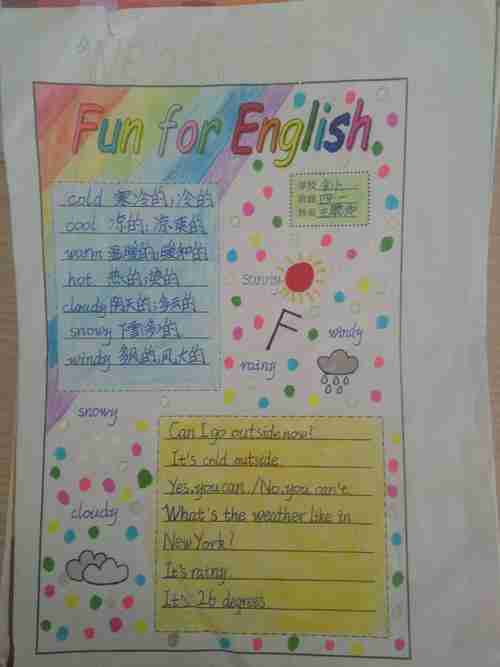 Fun for English
cold 寒冷的;冷的
cool 凉的;凉爽的
warm 温暖的;暖和的
hot 热的;烫的
cloudy 阴天的;多云的
snowy 下雪多的
windy 多风的,风大的
学校
班级 四、一
姓名
sunny
windy
rainy
snowy
cloudy
Can I go outside now?
It's cold outside.
Yes, you can. / No, you can't.
What's the weather like in
New York?
It's rainy.
It's 26 degrees.